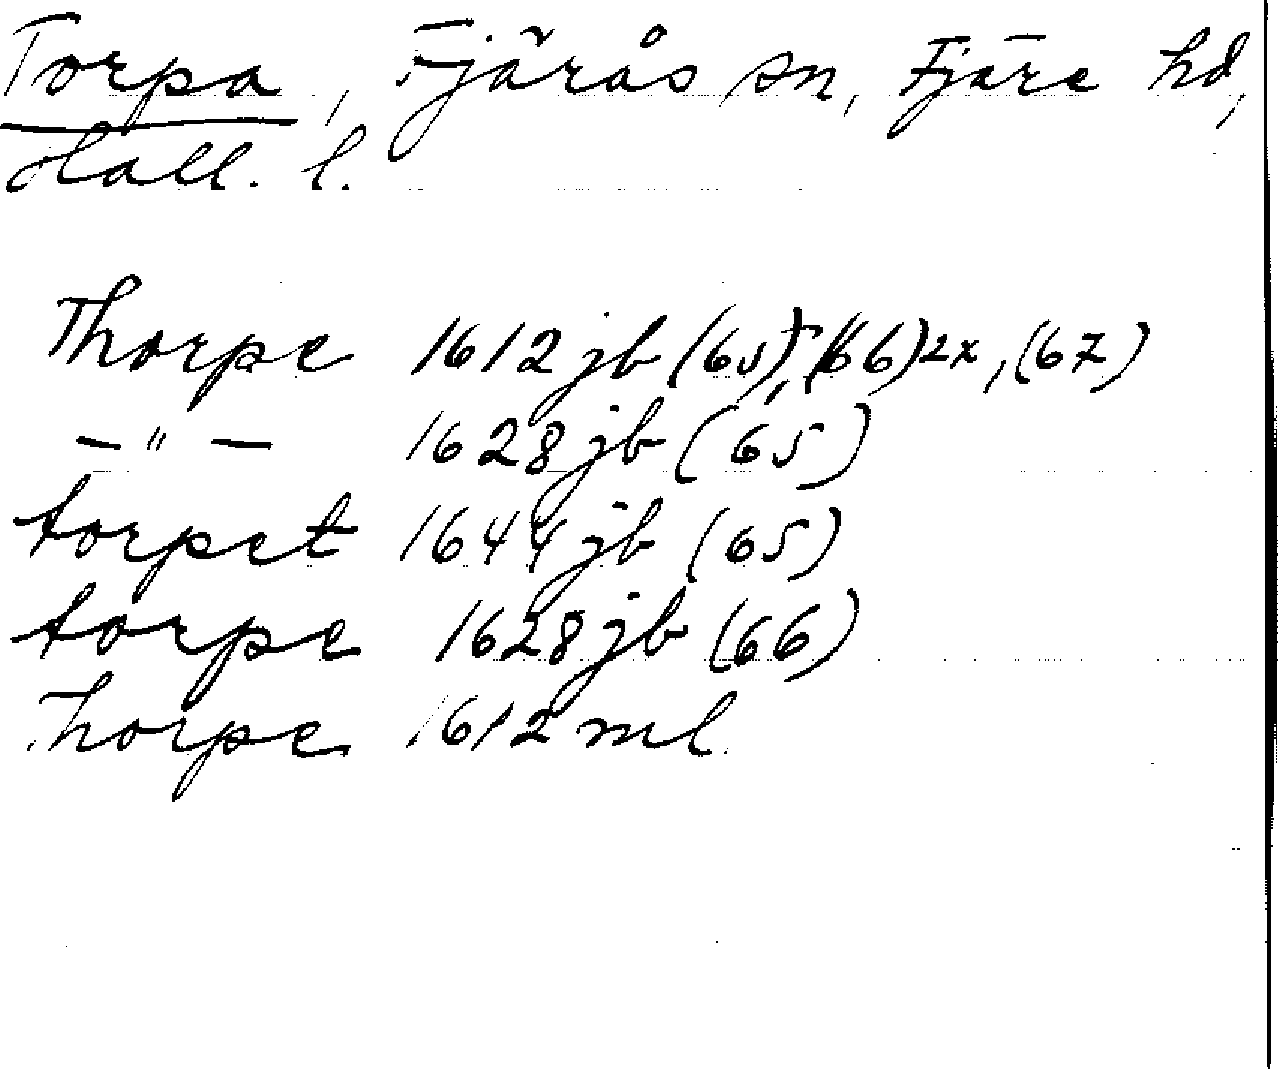 Torpa, Fjärås sn, Fjäre hd,
Hall. l.
Thorpe 1612 jb (65), (66) 2x, (67)
— " — 1628 jb (65)
torpet 1644 jb (65)
torpe 1628 jb (66)
Thorpe 1612 ml